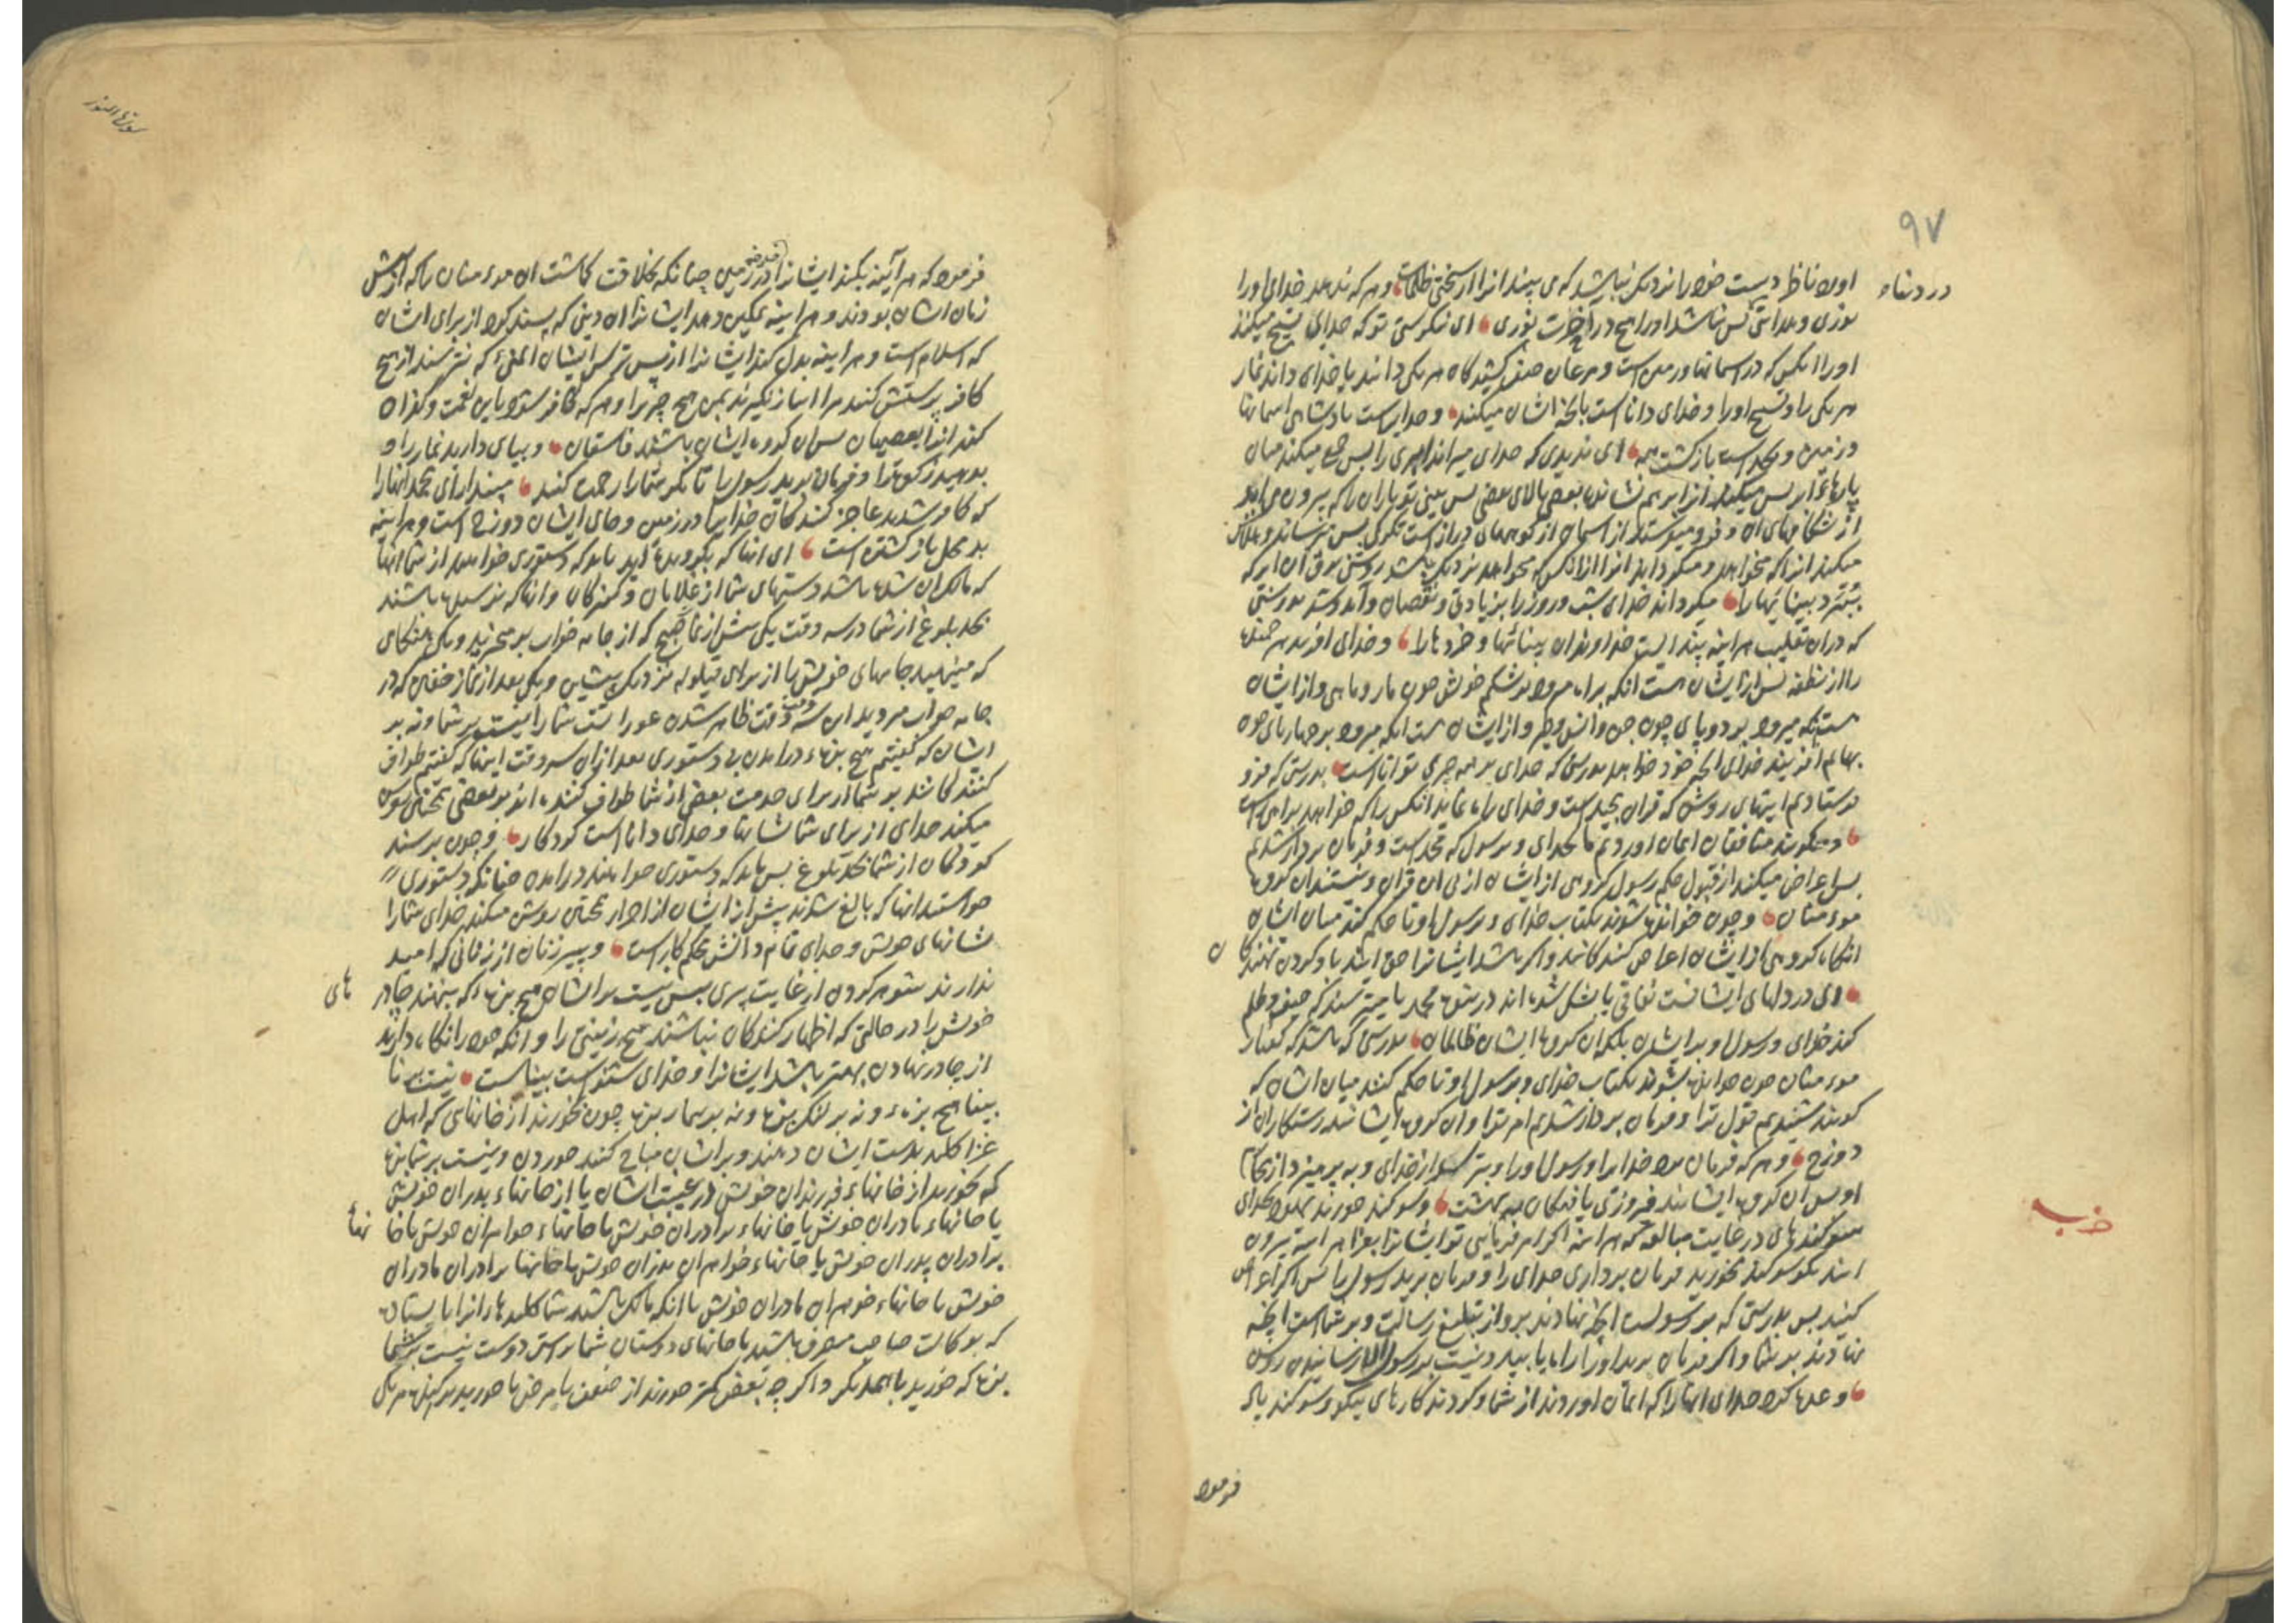 ۹۷
او دست خود را نزدیک نباشد که می بیند انرا از سختی ظلمات و هر که ندهد خدای او را
در دنیاء
نوری و هدایتی پس نباشد او را هیچ در اخرت نوری ای ننکرستی تو که خدای تسبیح میکند
او را انکس که در اسمانها و زمین است و مرغان صف کشیدکان هر یکی دانند یا خدای داند نماز
هر یکی را و تسبیح او را و خدای داناست بانچه ایشان میکنند و خدایراست پادشاهی اسمانها
و زمین و بخداست بازکشت همه ای ندیدی که خدای میراند ابری را پس جمع میکند میان
پارهاء ابر پس میکند انرا بر هم نشانده بعضی بالای بعضی پس بینی تو باران را که بیرون می اید
از شکافهای ان و فرو میفرستد از اسمان از کوههای در از است تکرک پس برساند
میکند انرا که خواهد و میکرداند انرا از انکس که خواهد نزدیک باشد روشنی برق ان ابر که
ببرد بینائیها را میکرداند خدای شب و روز را بزیادتی و نقصان بدرستی
که دران تقلیب هراینه پندیست خداوندان بینائیها و خردها را و خدای افرید هر جنبنده
را از نطفه پس از ایشان هست انکه براه میرود بر شکم خویش چون مار و ماهی و از ایشان
هست انکه میرود بر دو پای چون جن و انس و طیر و از ایشان هست انکه میرود بر چهار پای چون
بهایم افریند خدای انچه خود خواهد بدرستی که خدای بر همه چیزی تواناست بدرستی که فرو
فرستادیم ایتهای روشن که قران مجید است و خدای راه نماید انکس را که خواهد براه راست
و میکویند منافقان ایمان اوردیم ما بخدای و برسول که محمد است و فرمان بردار شدیم
پس اعراض میکنند از قبول حکم رسول کروهی از ایشان از پی ان قران و نیستند ان کروه
موءمنان و چون خوانده شوند بکتاب خدای و برسول او تا حکم کند میان ایشان
انکاه کروهی از ایشان اعراض کنندکانند و اکر باشد ایشانرا حق ایند باو کردن نهندکان
ای در دلهای ایشانست نفاقی یا بشک شده اند در نبوه محمد یا میترسند که حیف و ظلم
کند خدای و رسول او بر ایشان بلکه ان کروه ایشان ظالمان بدرستی که باشد که کفتار
موءمنان چون خوانده شوند بکتاب خدای و برسول او تا حکم کند میان ایشان که
کویند شنیدیم قول ترا و فرمان بردار شدیم امر ترا و ان کروه ایشانند رستکاران از
دوزخ و هر که فرمان برد خدایرا و رسول او را و بترسد از خدای و به پرهیزد از
او پس ان کروه ایشانند فیروزی یافتکان به بهشت و سوکند خورند بخدای
خرب
سوکندهای در غایت مبالغه که هر اینه اکر امر فرمایی تو ایشانرا بغزا هر اینه بیرون
ایند بکو سوکند مخورید فرمان برداری خدای را و فرمان برید رسول را پس اکر اعراض
کنید پس بدرستی که بر رسولست انچه نهادند برو از تبلیغ رسالت و بر شماست انچه
نهادند بر شما و اکر فرمان برید او را راه یابید و نیست بر رسول الا رسانیدن روشن
وعده کرد خدای انها را که ایمان اوردند از شما و کردند کارهای نیکو و سوکند یاد
فرمود
سورة النور
فرمود که هر آینه بکند ایشانرا خلیفه در زمین چنانکه بخلافت کاشت ان موءمنان را که از پیش
زمان ایشان بودند و هر اینه تمکین دهد ایشانرا ان دینی که پسند کرد از برای ایشان
که اسلام است و هر اینه بدل کند ایشانرا از پس ترس ایشان ایمنی که نترسند از هیچ
کافر پرستش کنند مرا انباز نکیرند بمن هیچ چیز را و هر که کافر شود باین نعمت و کفران
کند انرا بعصیان پس ان کروه ایشان باشند فاسقان و بپای دارید نماز را و
بدهید زکوة را و فرمان برید رسول را تا مکر شما را رحمت کنند مپندار ای محمد انها را
که کافر شدند عاجز کنندکان خدایرا در زمین و جای ایشان دوزخ است و هر اینه
بد محل بازکشتن است ای انها که بکرویده اید باید که دستوری خواهند از شما انها
که مالک ان شده باشد دستهای شما از غلامان و کنیزکان و انها که نرسیده باشند
بحد بلوغ از شما در سه وقت یکی پیش از نماز صبح که از جامه خواب بر میخیزید و یکی هنکامی
که مینهید جامهای خویش را از برای قیلوله نزدیک پیشین و یکی بعد از نماز خفتن که در
جامه خواب میروید این سه وقت وقت ظاهر شدن عوراتست شما را نیست بر شما و نه بر
ایشان که کفتیم هیچ بزهء در امدن بی دستوری بعد از ان سه وقت اینها که کفتیم طواف
کنندکانند بر شما از برای خدمت بعضی از شما طواف کننده اند بر بعضی همچنین روشن
میکند خدای از برای شما نشانها و خدای داناست کودکار و چون برسند
کودکان از شما بحد بلوغ پس باید که دستوری خواهند در امدن چنانکه دستوری
خواستند انها که بالغ شدند پیش از ایشان از احرار همچنین روشن میکند خدای شما را
نشانهای خویش و خدای تمام دانش محکم کار است و پیر زنان از زنانی که امید
ندارند شوهر کردن از غایت پیری پس نیست بر ایشان هیچ بزهء که بنهند چادرهای
خویش را در حالتی که اظهار کنندکان نباشند هیچ زینتی را و انکه خود را نکاه دارند
از چادر نهادن بهتر باشد ایشانرا و خدای شنواست بیناست نیست بر نا
بینا هیچ بزهء و نه بر لنک بزهء و نه بر بیمار بزهء چون بخورند از خانهایی که اهل
غزا کلید بدست ایشان دهند و بر ایشان مباح کنند خوردن و نیست بر شما بزهء
که بخورید از خانهاء فرزندان خویش در غیبت ایشان یا از خانهاء پدران خویش
یا خانهاء مادران خویش یا خانهاء برادران خویش یا خانهاء خواهران خویش یا خانهاء
برادران پدران خویش یا خانهاء خواهران پدران خویش یا خانهاء برادران مادران
خویش یا خانهاء خوهران مادران خویش یا انکه مالک باشید شما کلیدها را
که بوکالت صاحب متصرف باشید یا خانهای دوستان شما راستی دوست نیست بر شما
بزهء که خورید باهمدیکر و اکرچه بعضی کمتر خورند از ضعف یا مرض یا خورید پراکنده هر یکی